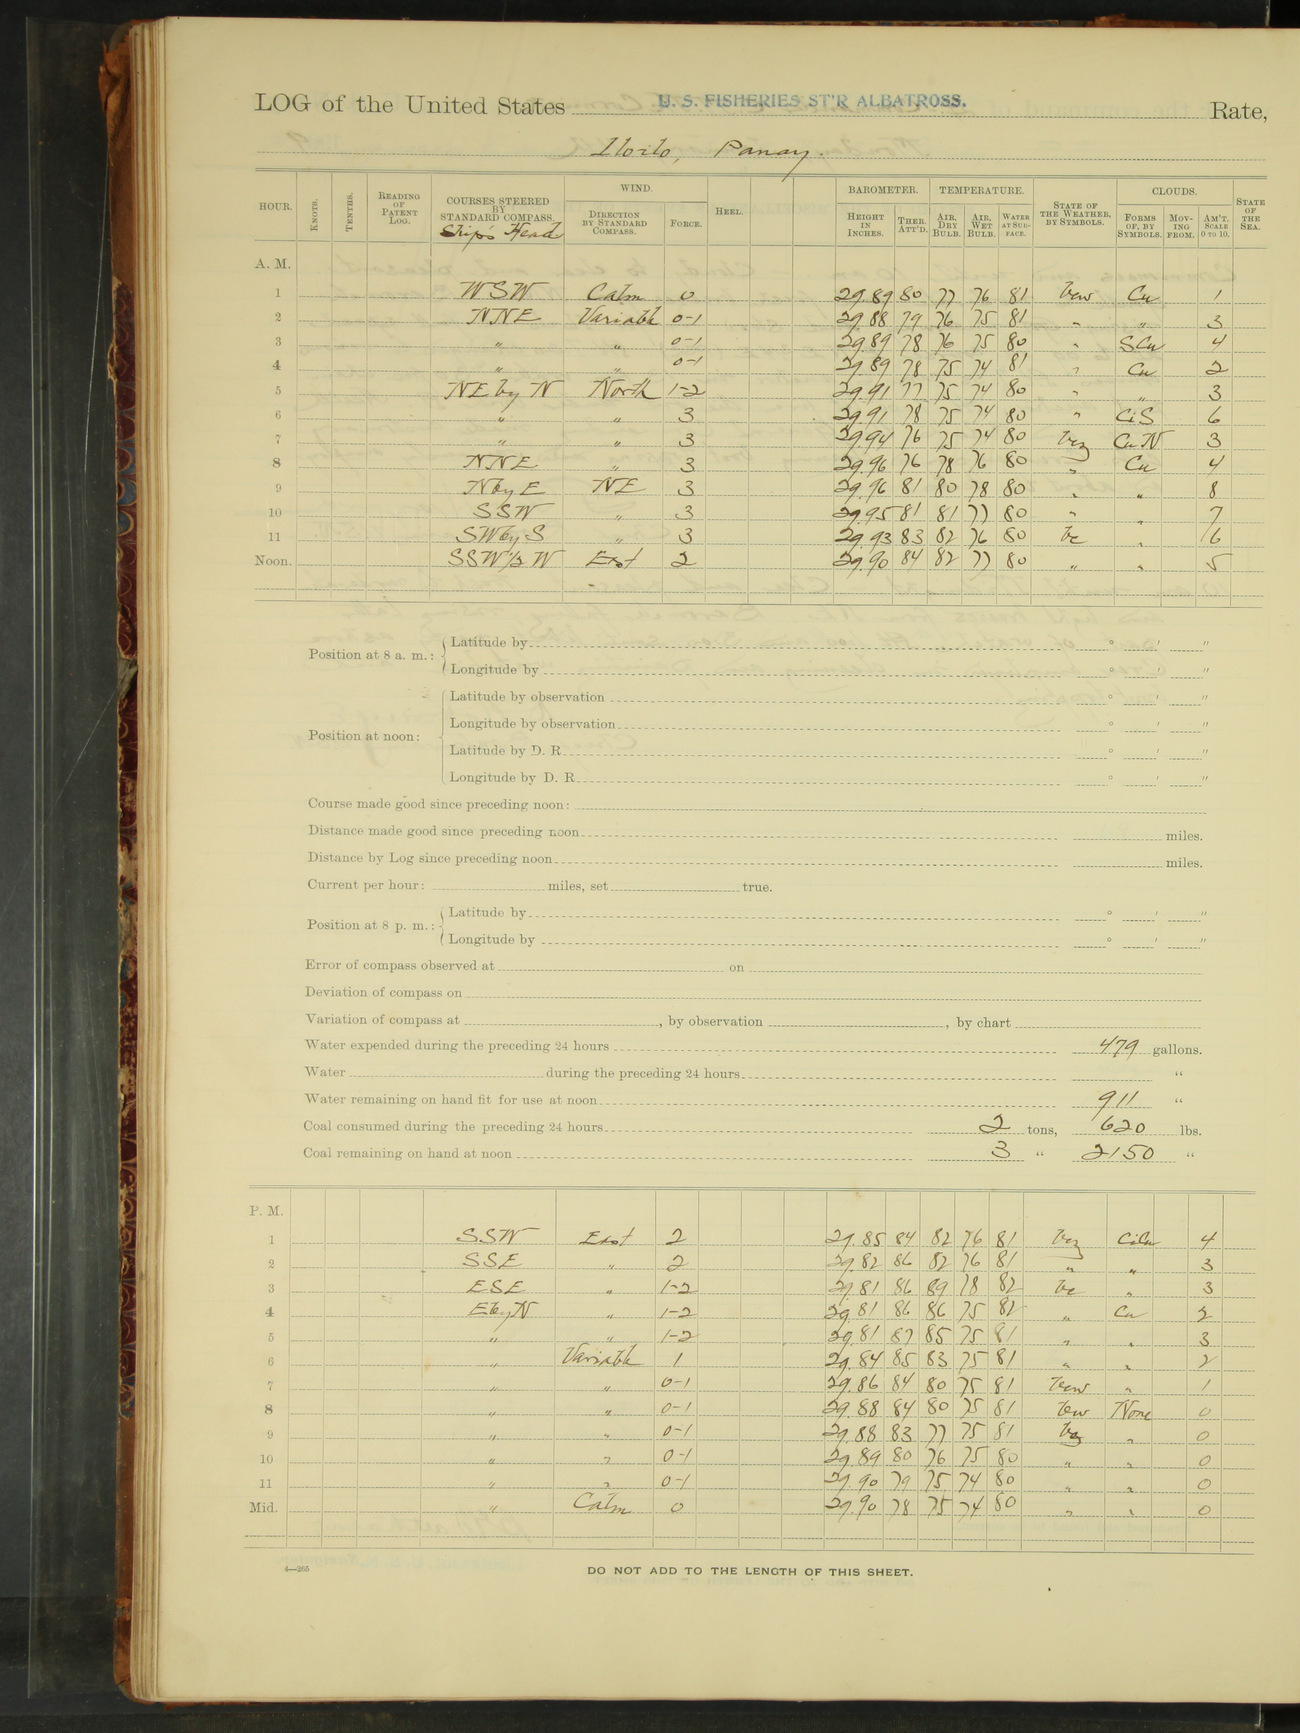 LOG of the United States U. S. FISHERIES ST'R ALBATROSS. Rate,
Iloilo, Panay.
HOUR. KNOTS. TENTHS. READING OF PATENT LOG. COURSES STEERED BY STANDARD COMPASS. Ship's Head WIND. DIRECTION BY STANDARD COMPASS. FORCE. HEEL. BAROMETER. HEIGHT IN INCHES. THER. ATT'D. TEMPERATURE. AIR, DRY BULB. AIR, WET BULB. WATER AT SURFACE. STATE OF THE WEATHER, BY SYMBOLS. CLOUDS. FORMS OF, BY SYMBOLS. MOVING FROM. AM'T. SCALE 0 TO 10. STATE OF THE SEA.
A. M.
1 WSW Calm 0 29.89 80 77 76 81 bcw Cu 1
2 NNE Variable 0-1 29.88 79 76 75 81 " " 3
3 " " 0-1 29.89 78 76 75 80 " SCu 4
4 " " 0-1 29.89 78 75 74 81 " Cu 2
5 NE by N North 1-2 29.91 77 75 74 80 " " 3
6 " " 3 29.91 78 75 74 80 " CiS 6
7 " " 3 29.94 76 75 74 80 bcz CuN 3
8 NNE " 3 29.96 76 78 76 80 " Cu 4
9 N by E NE 3 29.96 81 80 78 80 " " 8
10 SSW " 3 29.95 81 81 77 80 " " 7
11 SW by S " 3 29.93 83 82 76 80 bc " 6
Noon. SSW 1/2 W East 2 29.90 84 82 77 80 " " 5
Position at 8 a. m.: Latitude by ° ' "
Longitude by ° ' "
Position at noon: Latitude by observation ° ' "
Longitude by observation ° ' "
Latitude by D. R. ° ' "
Longitude by D. R. ° ' "
Course made good since preceding noon:
Distance made good since preceding noon miles.
Distance by Log since preceding noon miles.
Current per hour: miles, set true.
Position at 8 p. m.: Latitude by ° ' "
Longitude by ° ' "
Error of compass observed at on
Deviation of compass on
Variation of compass at , by observation , by chart
Water expended during the preceding 24 hours 479 gallons.
Water during the preceding 24 hours "
Water remaining on hand fit for use at noon 911 "
Coal consumed during the preceding 24 hours 2 tons, 620 lbs.
Coal remaining on hand at noon 3 " 2150 "
P. M.
1 SSW East 2 29.85 84 82 76 81 bcz CiCu 4
2 SSE " 2 29.82 86 82 76 81 " " 3
3 ESE " 1-2 29.81 86 89 78 82 bc " 3
4 E by N " 1-2 29.81 86 86 75 82 " Cu 2
5 " " 1-2 29.81 87 85 75 81 " " 3
6 " Variable 1 29.84 85 83 75 81 " " 2
7 " " 0-1 29.86 84 80 75 81 bcw " 1
8 " " 0-1 29.88 84 80 75 81 bw None 0
9 " " 0-1 29.88 83 77 75 81 " 0
10 " " 0-1 29.89 80 76 75 80 " " 0
11 " " 0-1 29.90 79 75 74 80 " " 0
Mid. " Calm 0 29.90 78 75 74 80 " " 0
4—265
DO NOT ADD TO THE LENGTH OF THIS SHEET.